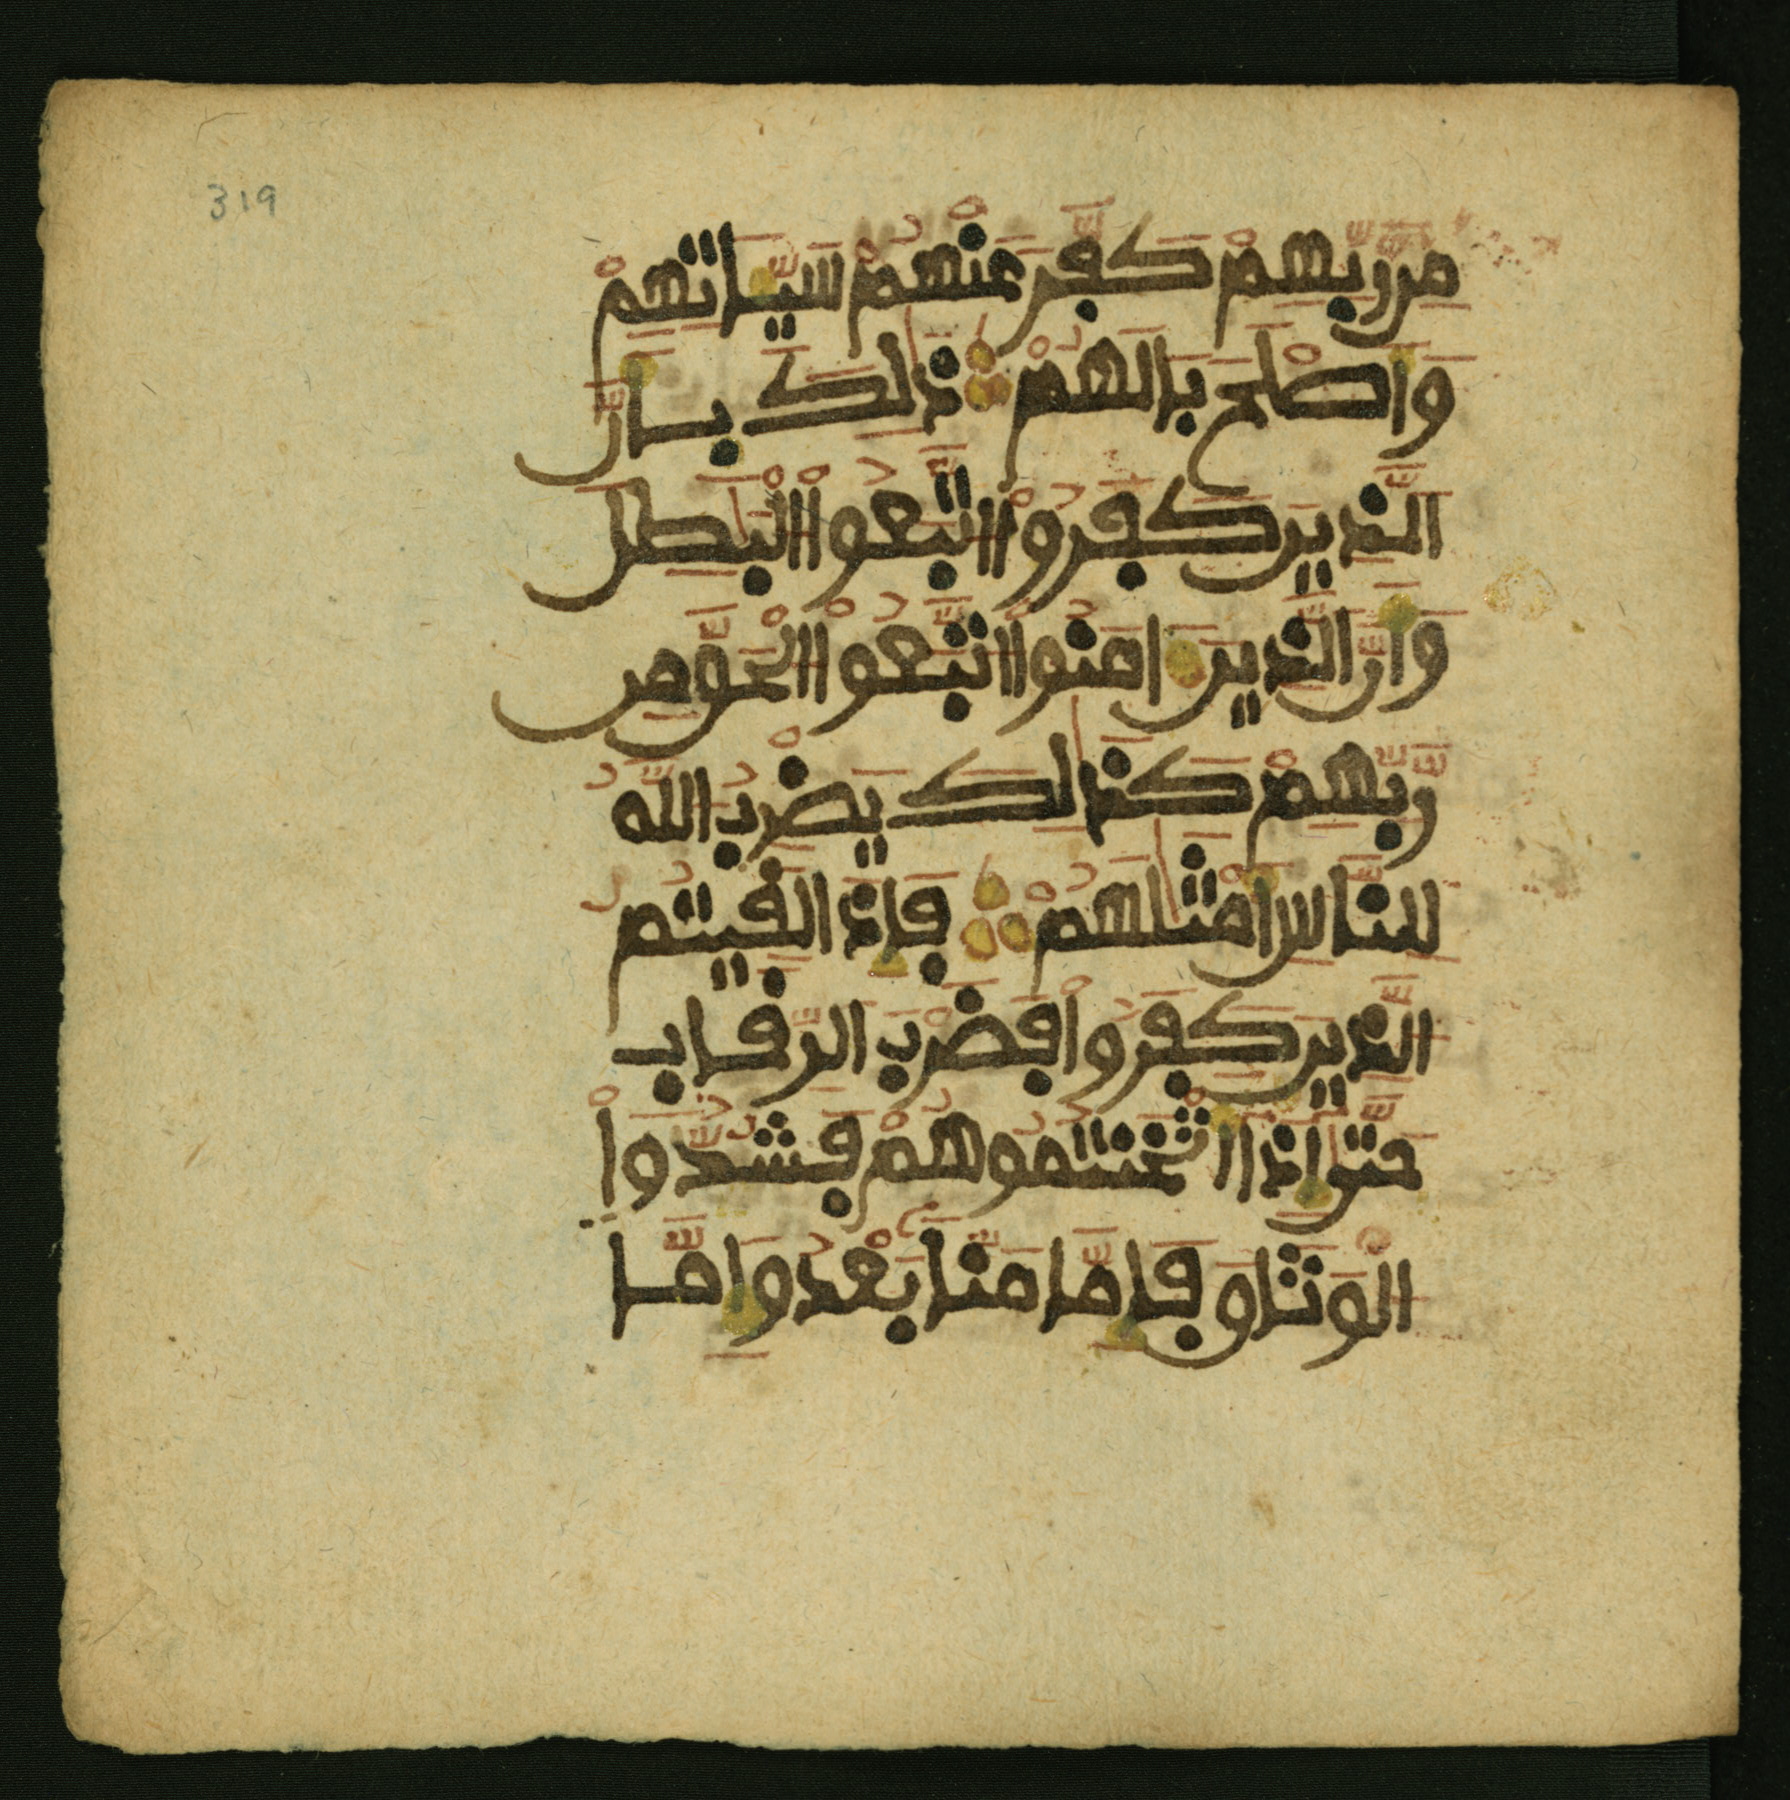 319
مِن رَّبِّهِمْ كَفَّرَ عَنْهُمْ سَيِّـَٔاتِهِمْ
وَأَصْلَحَ بَالَهُمْ ذَٰلِكَ بِأَنَّ
الَّذِينَ كَفَرُوا۟ اتَّبَعُوا۟ الْبَٰطِلَ
وَأَنَّ الَّذِينَ ءَامَنُوا۟ اتَّبَعُوا۟ الْحَقَّ مِن
رَّبِّهِمْ كَذَٰلِكَ يَضْرِبُ اللَّهُ
لِلنَّاسِ أَمْثَٰلَهُمْ فَإِذَا لَقِيتُمُ
الَّذِينَ كَفَرُوا۟ فَضَرْبَ الرِّقَابِ
حَتَّىٰ إِذَا أَثْخَنتُمُوهُمْ فَشُدُّوا۟
الْوَثَاقَ فَإِمَّا مَنًّا بَعْدُ وَإِمَّا